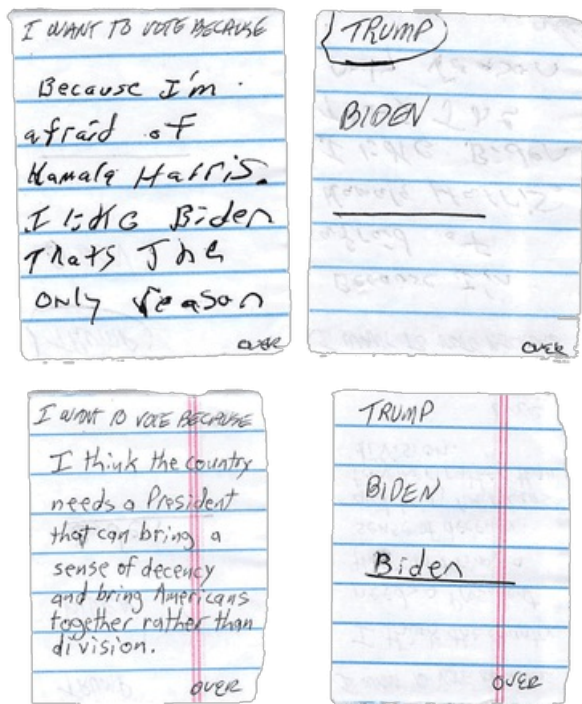 I WANT TO VOTE BECAUSE
Because I'm
afraid of
Kamala Harris.
I like Biden
Thats The
only reason
OVER
TRUMP
BIDEN
OVER
I WANT TO VOTE BECAUSE
I think the country
needs a President
that can bring a
sense of decency
and bring Americans
together rather than
division.
OVER
TRUMP
BIDEN
Biden
OVER